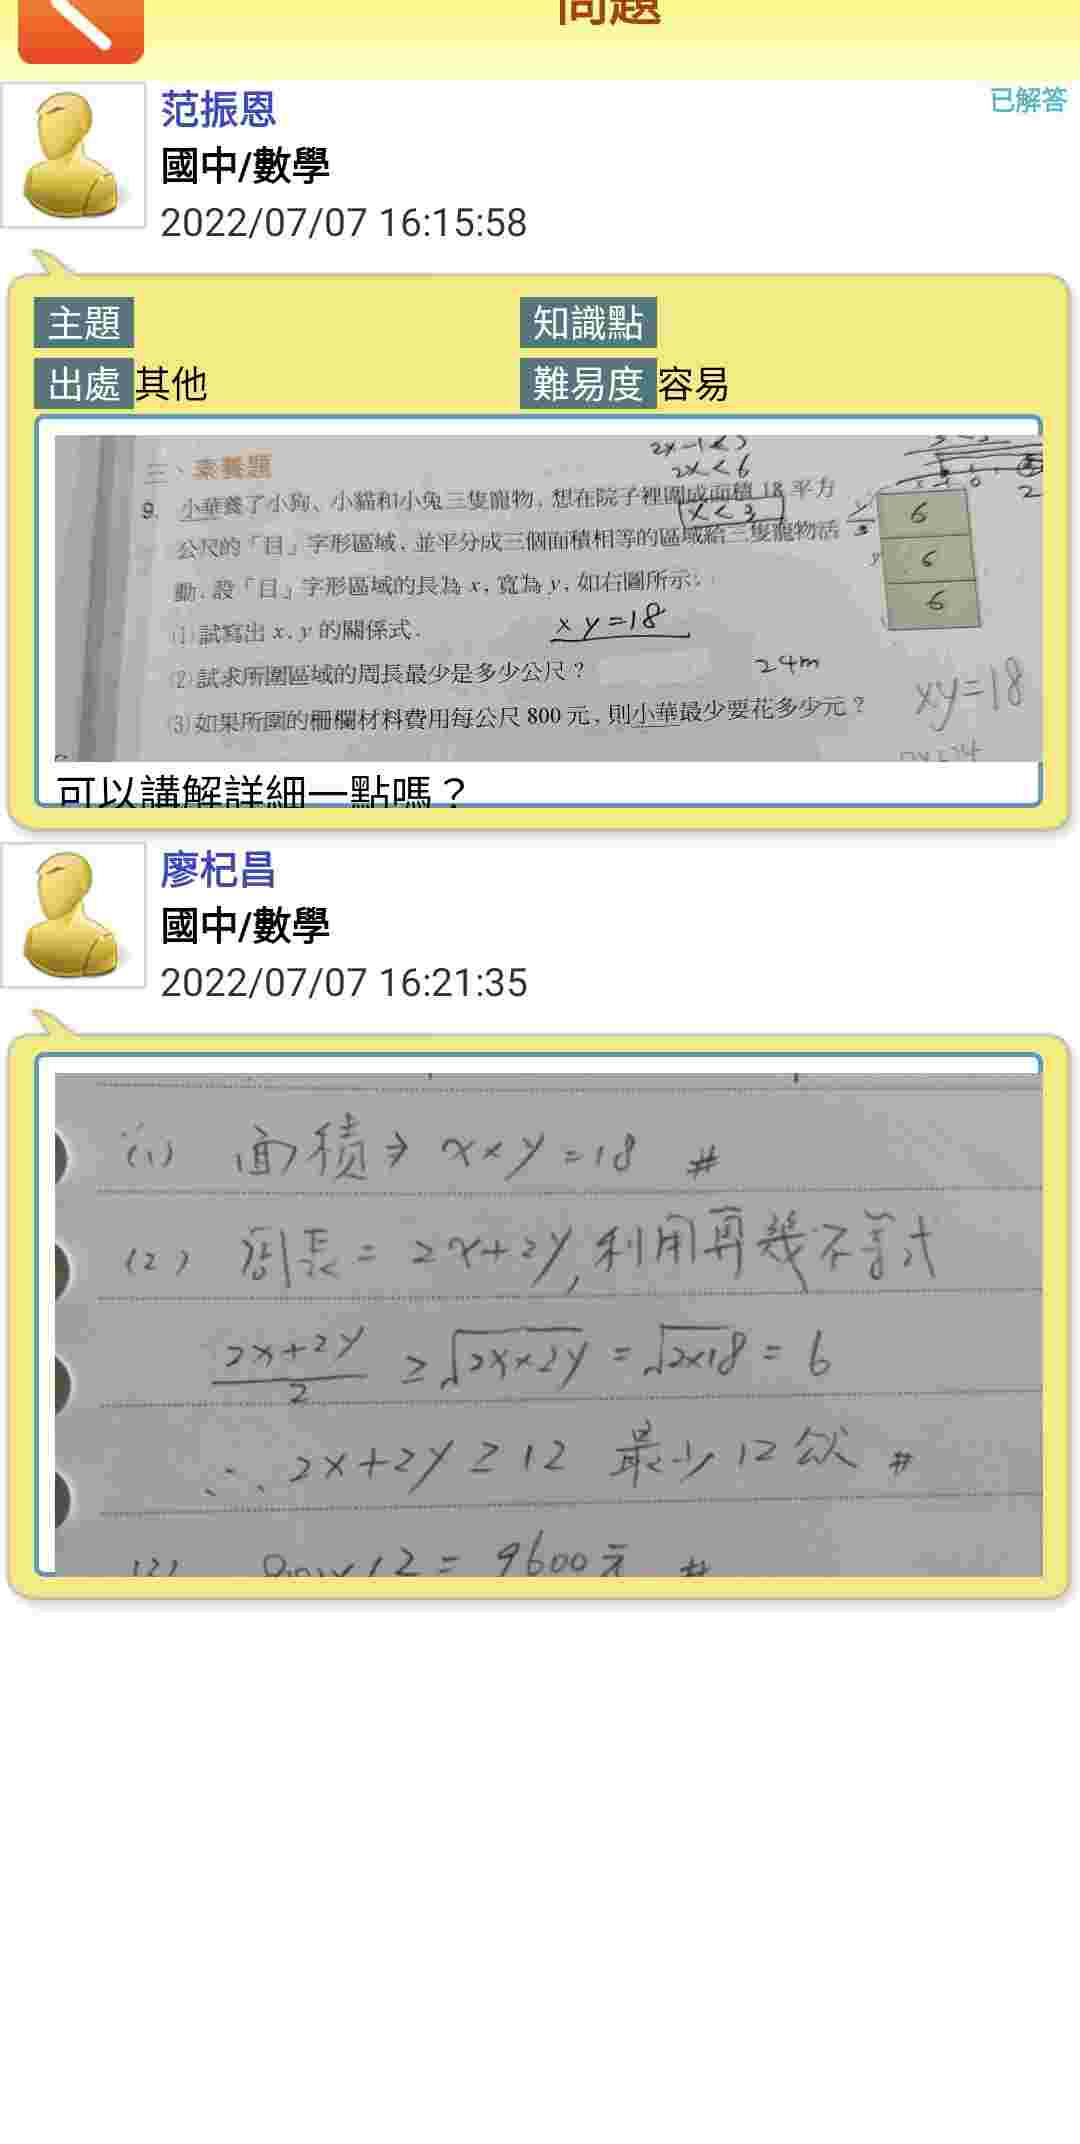 問題
范振恩
已解答
國中/數學
2022/07/07 16:15:58
主題
知識點
出處 其他
難易度 容易
2x-1<5
2x<6
x<3
三、素養題
9. 小華養了小狗、小貓和小兔三隻寵物,想在院子裡圍成面積 18 平方
公尺的「目」字形區域,並平分成三個面積相等的區域給三隻寵物活
動.設「目」字形區域的長為 x,寬為 y,如右圖所示:
6
6
6
2
(1) 試寫出 x、y 的關係式.
xy=18
(2) 試求所圍區域的周長最少是多少公尺?
24m
(3) 如果所圍的柵欄材料費用每公尺 800 元,則小華最少要花多少元?
xy=18
可以講解詳細一點嗎?
廖杞昌
國中/數學
2022/07/07 16:21:35
(1) 面積⇒ x×y=18 #
(2) 周長= 2x+2y,利用算幾不等式
2x+2y/2 ≥√2x×2y = √2×18 = 6
∴ 2x+2y≥12 最少12公尺 #
12 = 9600元 #